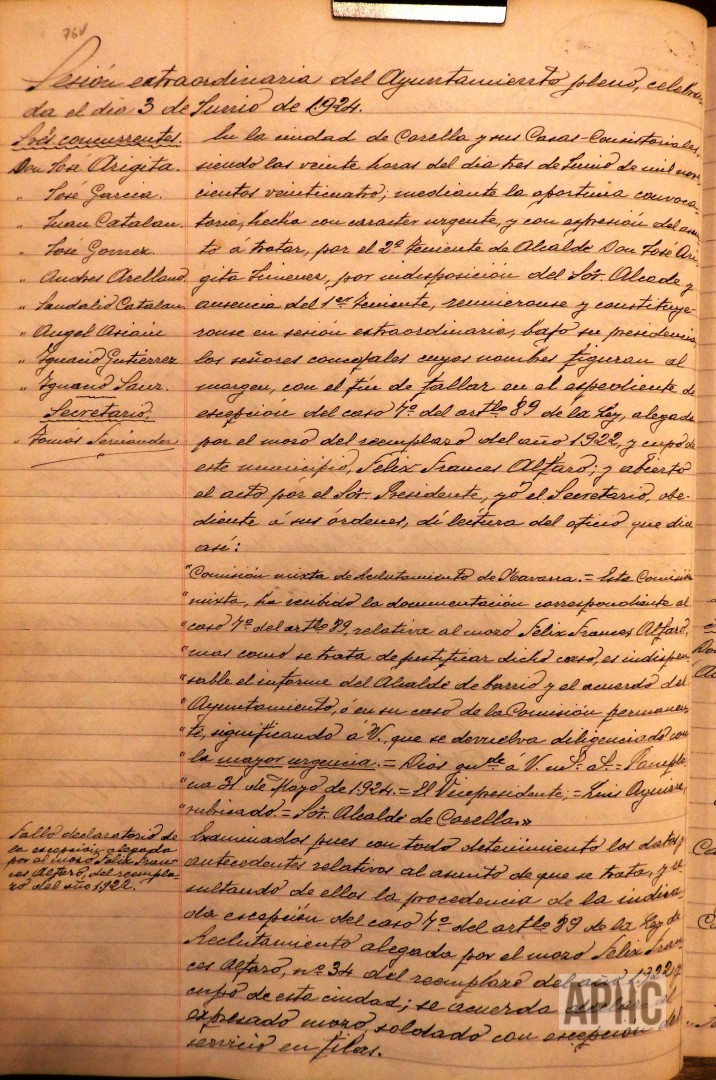 76v
Sesión extraordinaria del Ayuntamiento pleno, celebra-
da el dia 3 de Junio de 1924.
Sres concurrentes.
Don José Arigita.
" José Garcia.
" Juan Catalan.
" José Gomez.
" Andres Arellano
" Sandalio Catalan.
" Angel Asiain
" Ignacio Gutierrez
" Ignacio Sanz.
Secretario,
" Tomás Fernandez
En la ciudad de Corella y sus Casas-Consistoriales,
siendo las veinte horas del dia tres de Junio de mil nove-
cientos veinticuatro; mediante la oportuna convoca-
toria, hecha con caracter urgente, y con expresión del asun-
to á tratar, por el 2º Teniente de Alcalde Don José Ari-
gita Jimenez, por indisposición del Sór. Alcade y
ausencia del 1er Teniente, reunieronse y constituye-
ronse en sesión extraordinaria, bajo su presidencia
los señores concejales cuyos nombres figuran al
margen, con el fin de fallar en el expediente de
excepción del caso 7º del artlo 89 de la Ley, alegada
por el mozo del reemplazo del año 1.922, y cupo de
este municipio, Felix Frances Alfaro; y abierto
el acto pór el Sór. Presidente, yó el Secretario, obe-
diente á sus órdenes, dí lectura del oficio que dice
asi:
"Comisión mixta de Reclutamiento de Navarra. = Esta Comisión
"mixta, ha recibido la documentación correspondiente al
"caso 7º del artlo 89, relativa al mozo Felix Frances Alfaro,
"mas como se trata de justificar dicho caso, es indispen-
"sable el informe del Alcalde de barrio y el acuerdo del
"Ayuntamiento, ó en su caso de la Comisión permanen-
"te, significando á V., que se devuelva diligenciado con
"la mayor urgencia. = Dios gu.de á V. m.s a.s = Pamplo-
"na 31 de Mayo de 1924. = El Vicepresidente, = Luis Aguirre,
"rubricado. = Sór. Alcalde de Corella."
Fallo declaratorio de
la excepción alegada
por el mozo Felix Fran-
ces Alfaro, del reempla-
zo del año 1922.
Examinados pues con todo detenimiento los datos y
antecedentes relativos al asunto de que se trata, y re-
sultando de ellos la procedencia de la indica-
da excepción del caso 7º del artlo 89 de la Ley de
Reclutamiento alegada por el mozo Felix Fran-
ces Alfaro, nº 34 del reemplazo del año 1922 y
cupo de esta ciudad; se acuerda declarar al
expresado mozo, soldado con excepción del
servicio en filas.
APHC